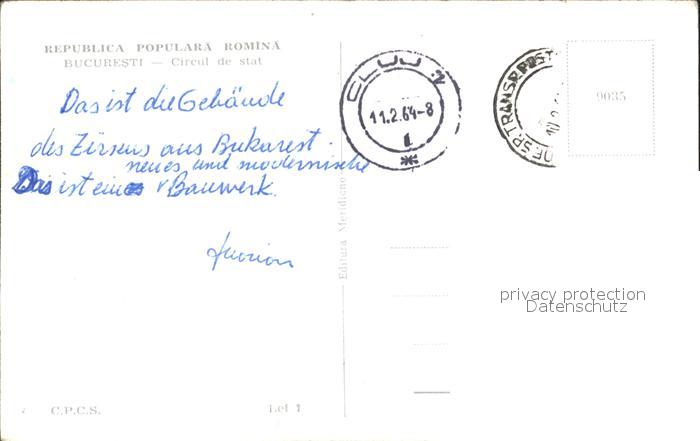 REPUBLICA POPULARĂ ROMÎNĂ
BUCUREȘTI — Circul de stat
Das ist die Gebäude
des Zirseus aus Bukarest.
neues und modernische
Das ist eines v Bauwerk.
Editura Meridiane
CLUJ 2
11.2.64-8
1
9035
privacy protection
Datenschutz
C.P.C.S.
Lei 1